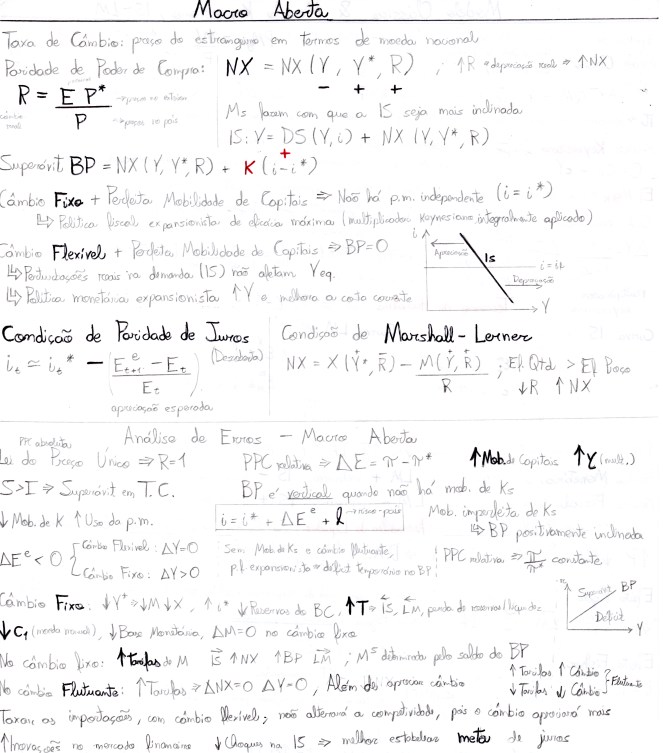 Macro Aberta
Taxa de Câmbio: preço do estrangeiro em termos de moeda nacional
Paridade de Poder de Compra:
R = E P* / P
câmbio real
→ preço no exterior
→ preço no país
NX = NX (Y, Y*, R) ; ↑R = depreciação real ⇒ ↑NX
− + +
Ms fazem com que a IS seja mais inclinada
IS: Y = DS (Y, i) + NX (Y, Y*, R)
Superávit BP = NX (Y, Y*, R) + K (i - i*)
+
Câmbio Fixo + Perfeita Mobilidade de Capitais ⇒ Não há p.m. independente (i = i*)
↳ Política fiscal expansionista de eficácia máxima (multiplicador keynesiano integralmente aplicado)
Câmbio Flexível + Perfeita Mobilidade de Capitais ⇒ BP=0
↳ Perturbações reais na demanda (IS) não afetam Yeq.
↳ Política monetária expansionista ↑Y e melhora a conta corrente
i
Apreciação
IS
i = i*
Depreciação
Y
Condição de Paridade de Juros
i_t ≃ i_t* − (E^e_t+1 − E_t / E_t) (Descoberta)
apreciação esperada
Condição de Marshall-Lerner
NX = X (Y*, R) − M(Y, R) / R ; Ef. Qtd > Ef. Preço
↓R ↑NX
Análise de Erros — Macro Aberta
PPC absoluta
Lei do Preço Único ⇒ R=1
PPC relativa ⇒ ΔE = π − π*
↑Mob. de Capitais ↑Y (mult.)
S>I ⇒ Superávit em T.C.
BP é vertical quando não há mob. de Ks
↓Mob. de K ↑Uso da p.m.
i = i* + ΔE^e + → risco-país
Mob. imperfeita de Ks
↳ BP positivamente inclinada
ΔE^e < 0 { Câmbio Flexível: ΔY=0
Câmbio Fixo: ΔY>0
Sem Mob. de Ks e câmbio flutuante,
p.f. expansionista ⇒ déficit temporário no BP
PPC relativa ⇒ π/π* constante
Câmbio Fixo: ↓Y* ⇒ ↓M ↓X, ↑i* ↓Reservas do BC, ↑T ⇒ IS, LM, perda de reservas
Superávit
BP
Déficit
Y
↓C1 (moeda), ↓Base Monetária, ΔM=0 no câmbio fixo
No câmbio fixo: ↑tarifas de M IS ↑NX ↑BP LM ; M^S determinada pelo saldo do BP
No câmbio Flutuante: ↑Tarifas ⇒ ΔNX=0 ΔY=0, Além de apreciar câmbio
↑Tarifas ↑Câmbio
↓Tarifas ↓Câmbio } Flutuante
Taxar as importações, com câmbio flexível, não alterará a competitividade, pois o câmbio apreciará mais
↑Inovações no mercado financeiro ↓Choques na IS ⇒ melhor estabelecer metas de juros